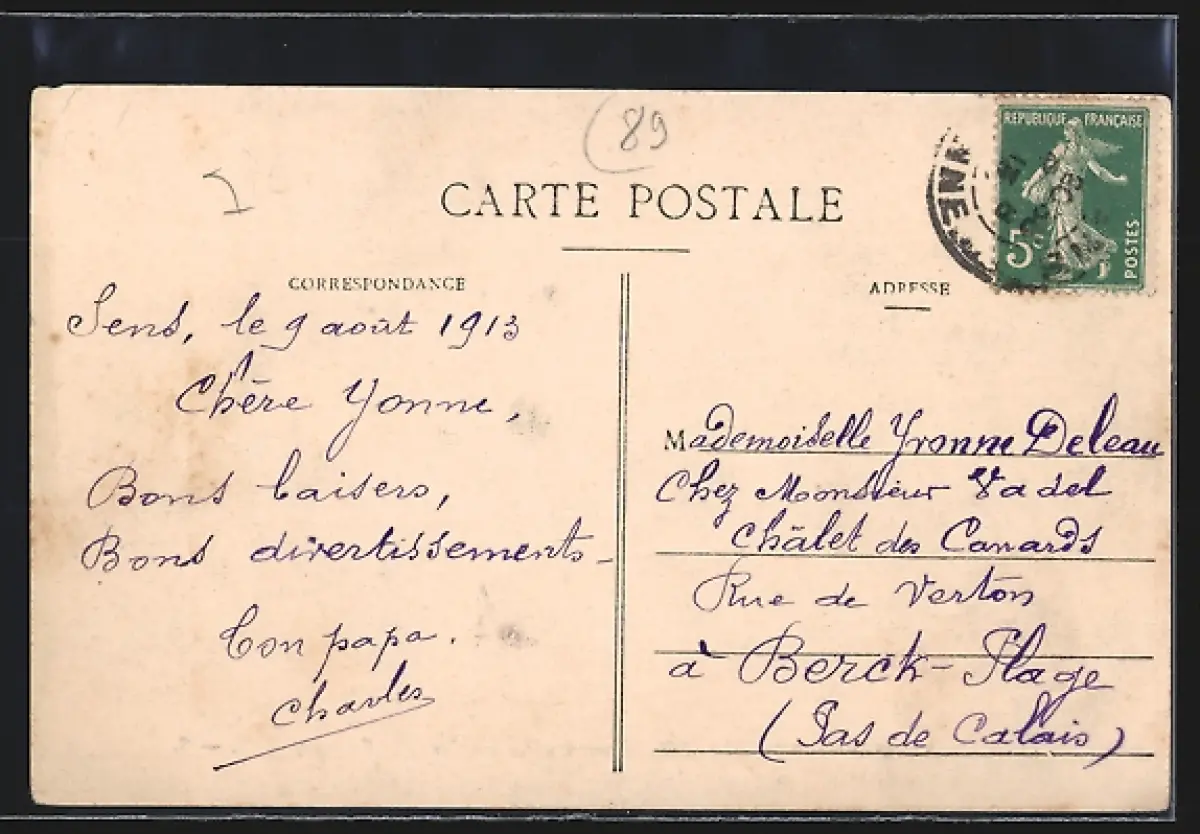 (89
CARTE POSTALE
REPUBLIQUE FRANÇAISE
5c
POSTES
NNE
CORRESPONDANCE
Sens, le 9 août 1913
Chère Yonne,
Bons baisers,
Bons divertissements-
Ton papa.
Charles
ADRESSE
Mademoiselle Yvonne Deleau
Chez Monsieur Vadel
Châlet des Canards
Rue de Verton
à Berck-Plage
(Pas de Calais)